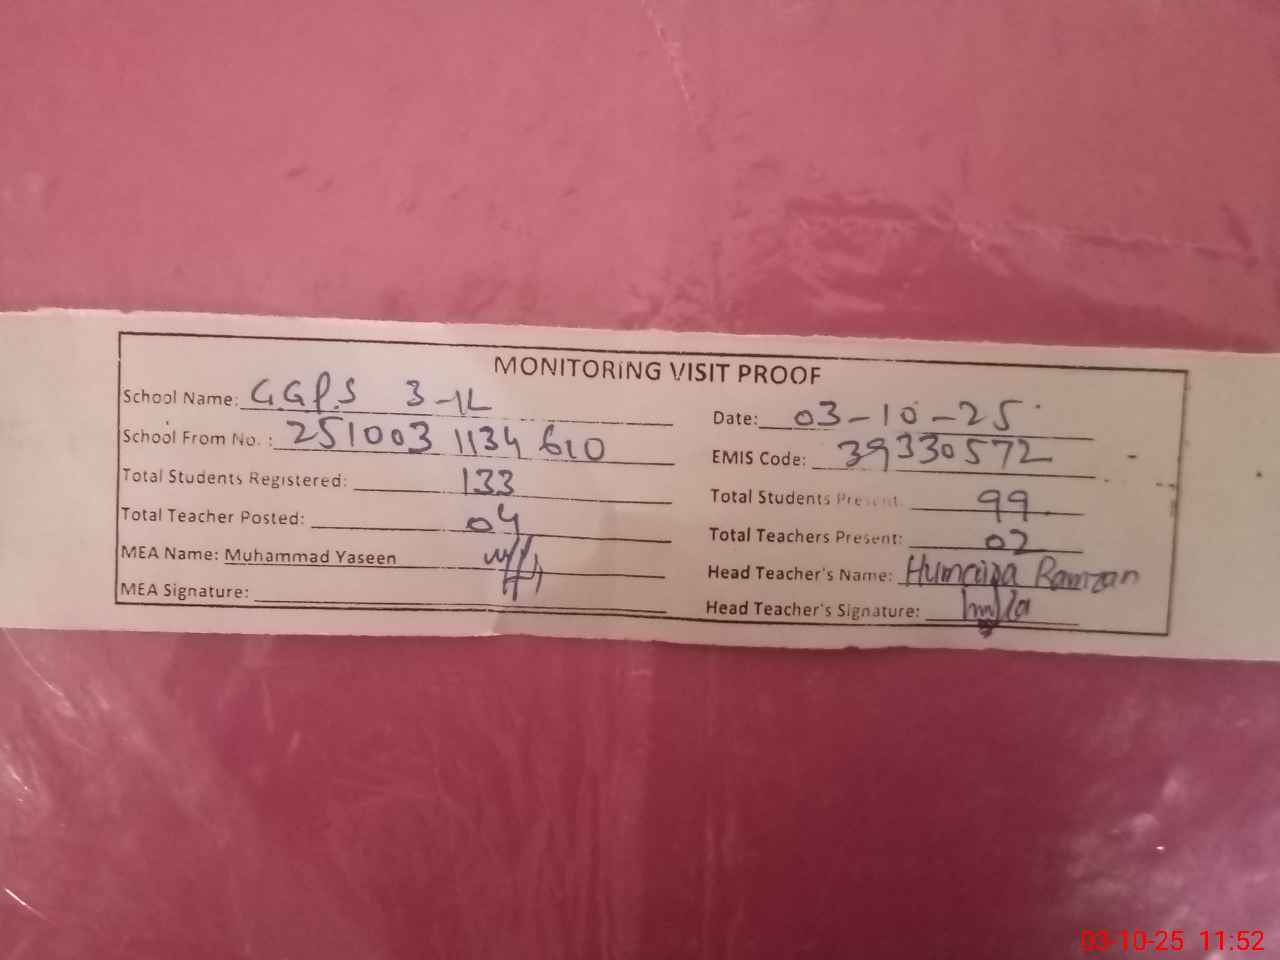 MONITORING VISIT PROOF
School Name: G.G.P.S 3-1L
Date: 03-10-25
School From No. : 251003 1134 610
EMIS Code: 39330572
Total Students Registered: 133
Total Students Present: 99
Total Teacher Posted: 04
Total Teachers Present: 02
MEA Name: Muhammad Yaseen
Head Teacher's Name: Humaira Ramzan
MEA Signature:
Head Teacher's Signature:
03-10-25 11:52